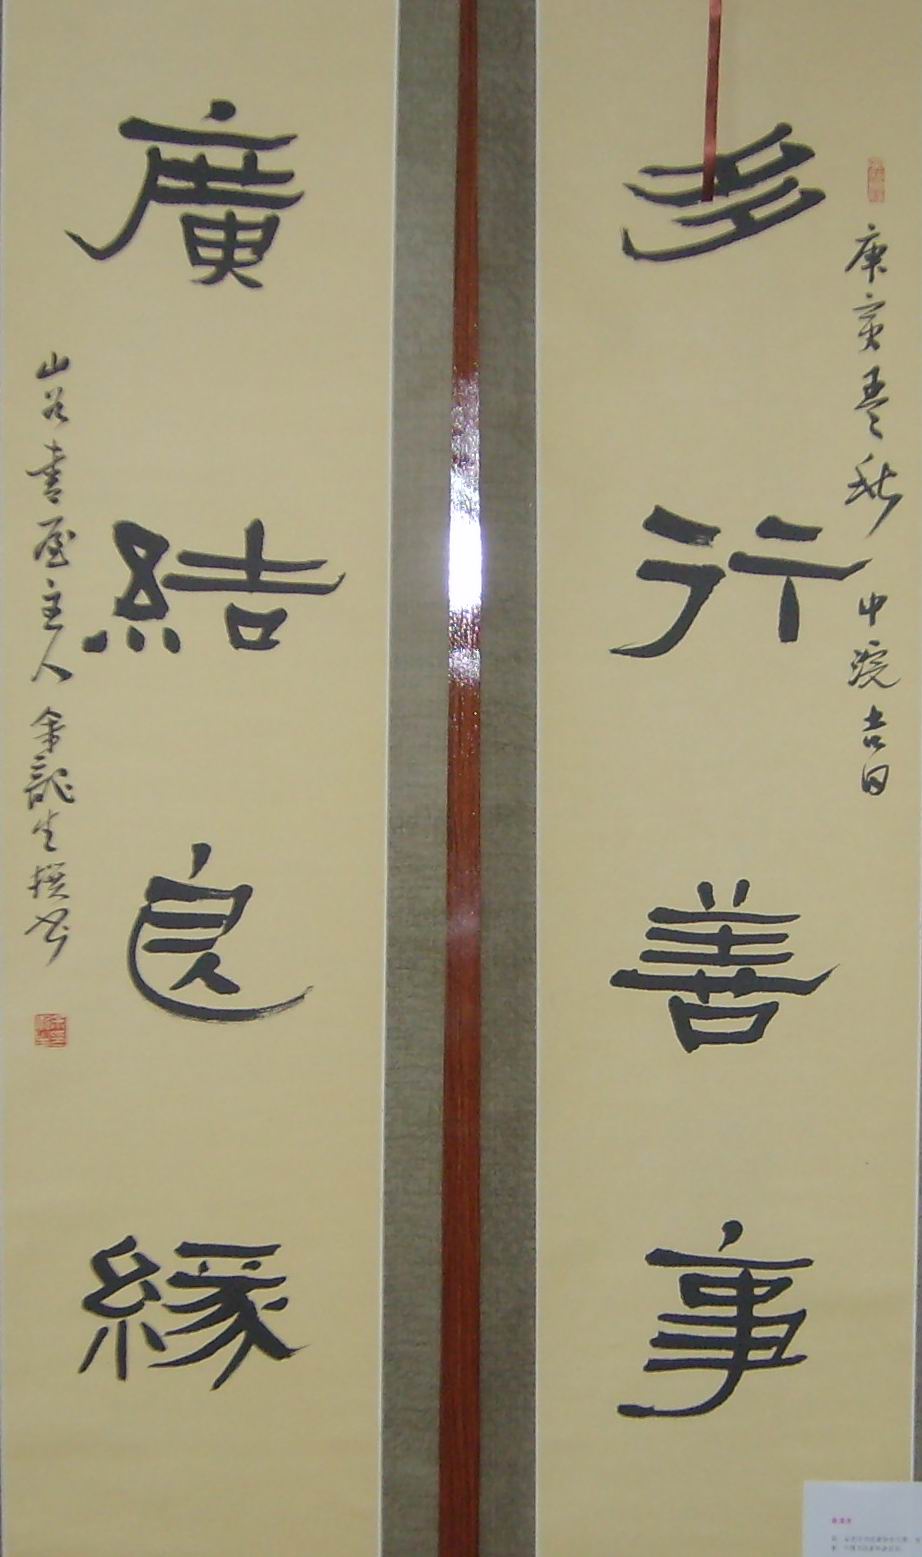 庚寅孟秋 中浣吉日
多行善事
廣結良緣
山谷書屋主人 余龍生撰書